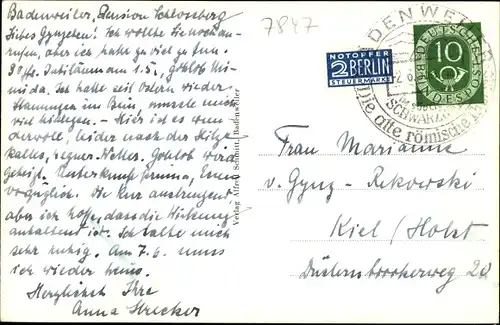 Badenweiler, Pension Schlossberg
Liebes Gynzchen! Ich wollte Sie noch an-
rufen, aber ich hatte zu viel zu tun.
Jubiläum am 1.5., Gottlob Mi-
ni da. Ich hatte seit Ostern wieder
Stauungen im Bein, musste noch
viel hinlegen. - Hier ist es wun-
dervoll, leider nach der Hitze
kaltes, regner. Wetter. Gottlob wird
geheizt. Unterkunft prima, Essen
vorzüglich. Die Kur anstrengend
aber ich hoffe, dass die Wirkung
anhaltend ist. Ich halte mich
sehr ruhig. Am 7.6. muss
ich wieder heim.
Herzlichst Ihre
Anna Strecker
Verlag Alfred Schmitt, Badenweiler
7847
NOTOPFER
2 BERLIN
STEUERMARKE
BADENWEILER
SCHWARZW
Die alte römische
DEUTSCHE BUNDESPOST
10
Frau Marianne
v. Gynz-Rekowski
Kiel /Holst
Düsternbrookerweg 20